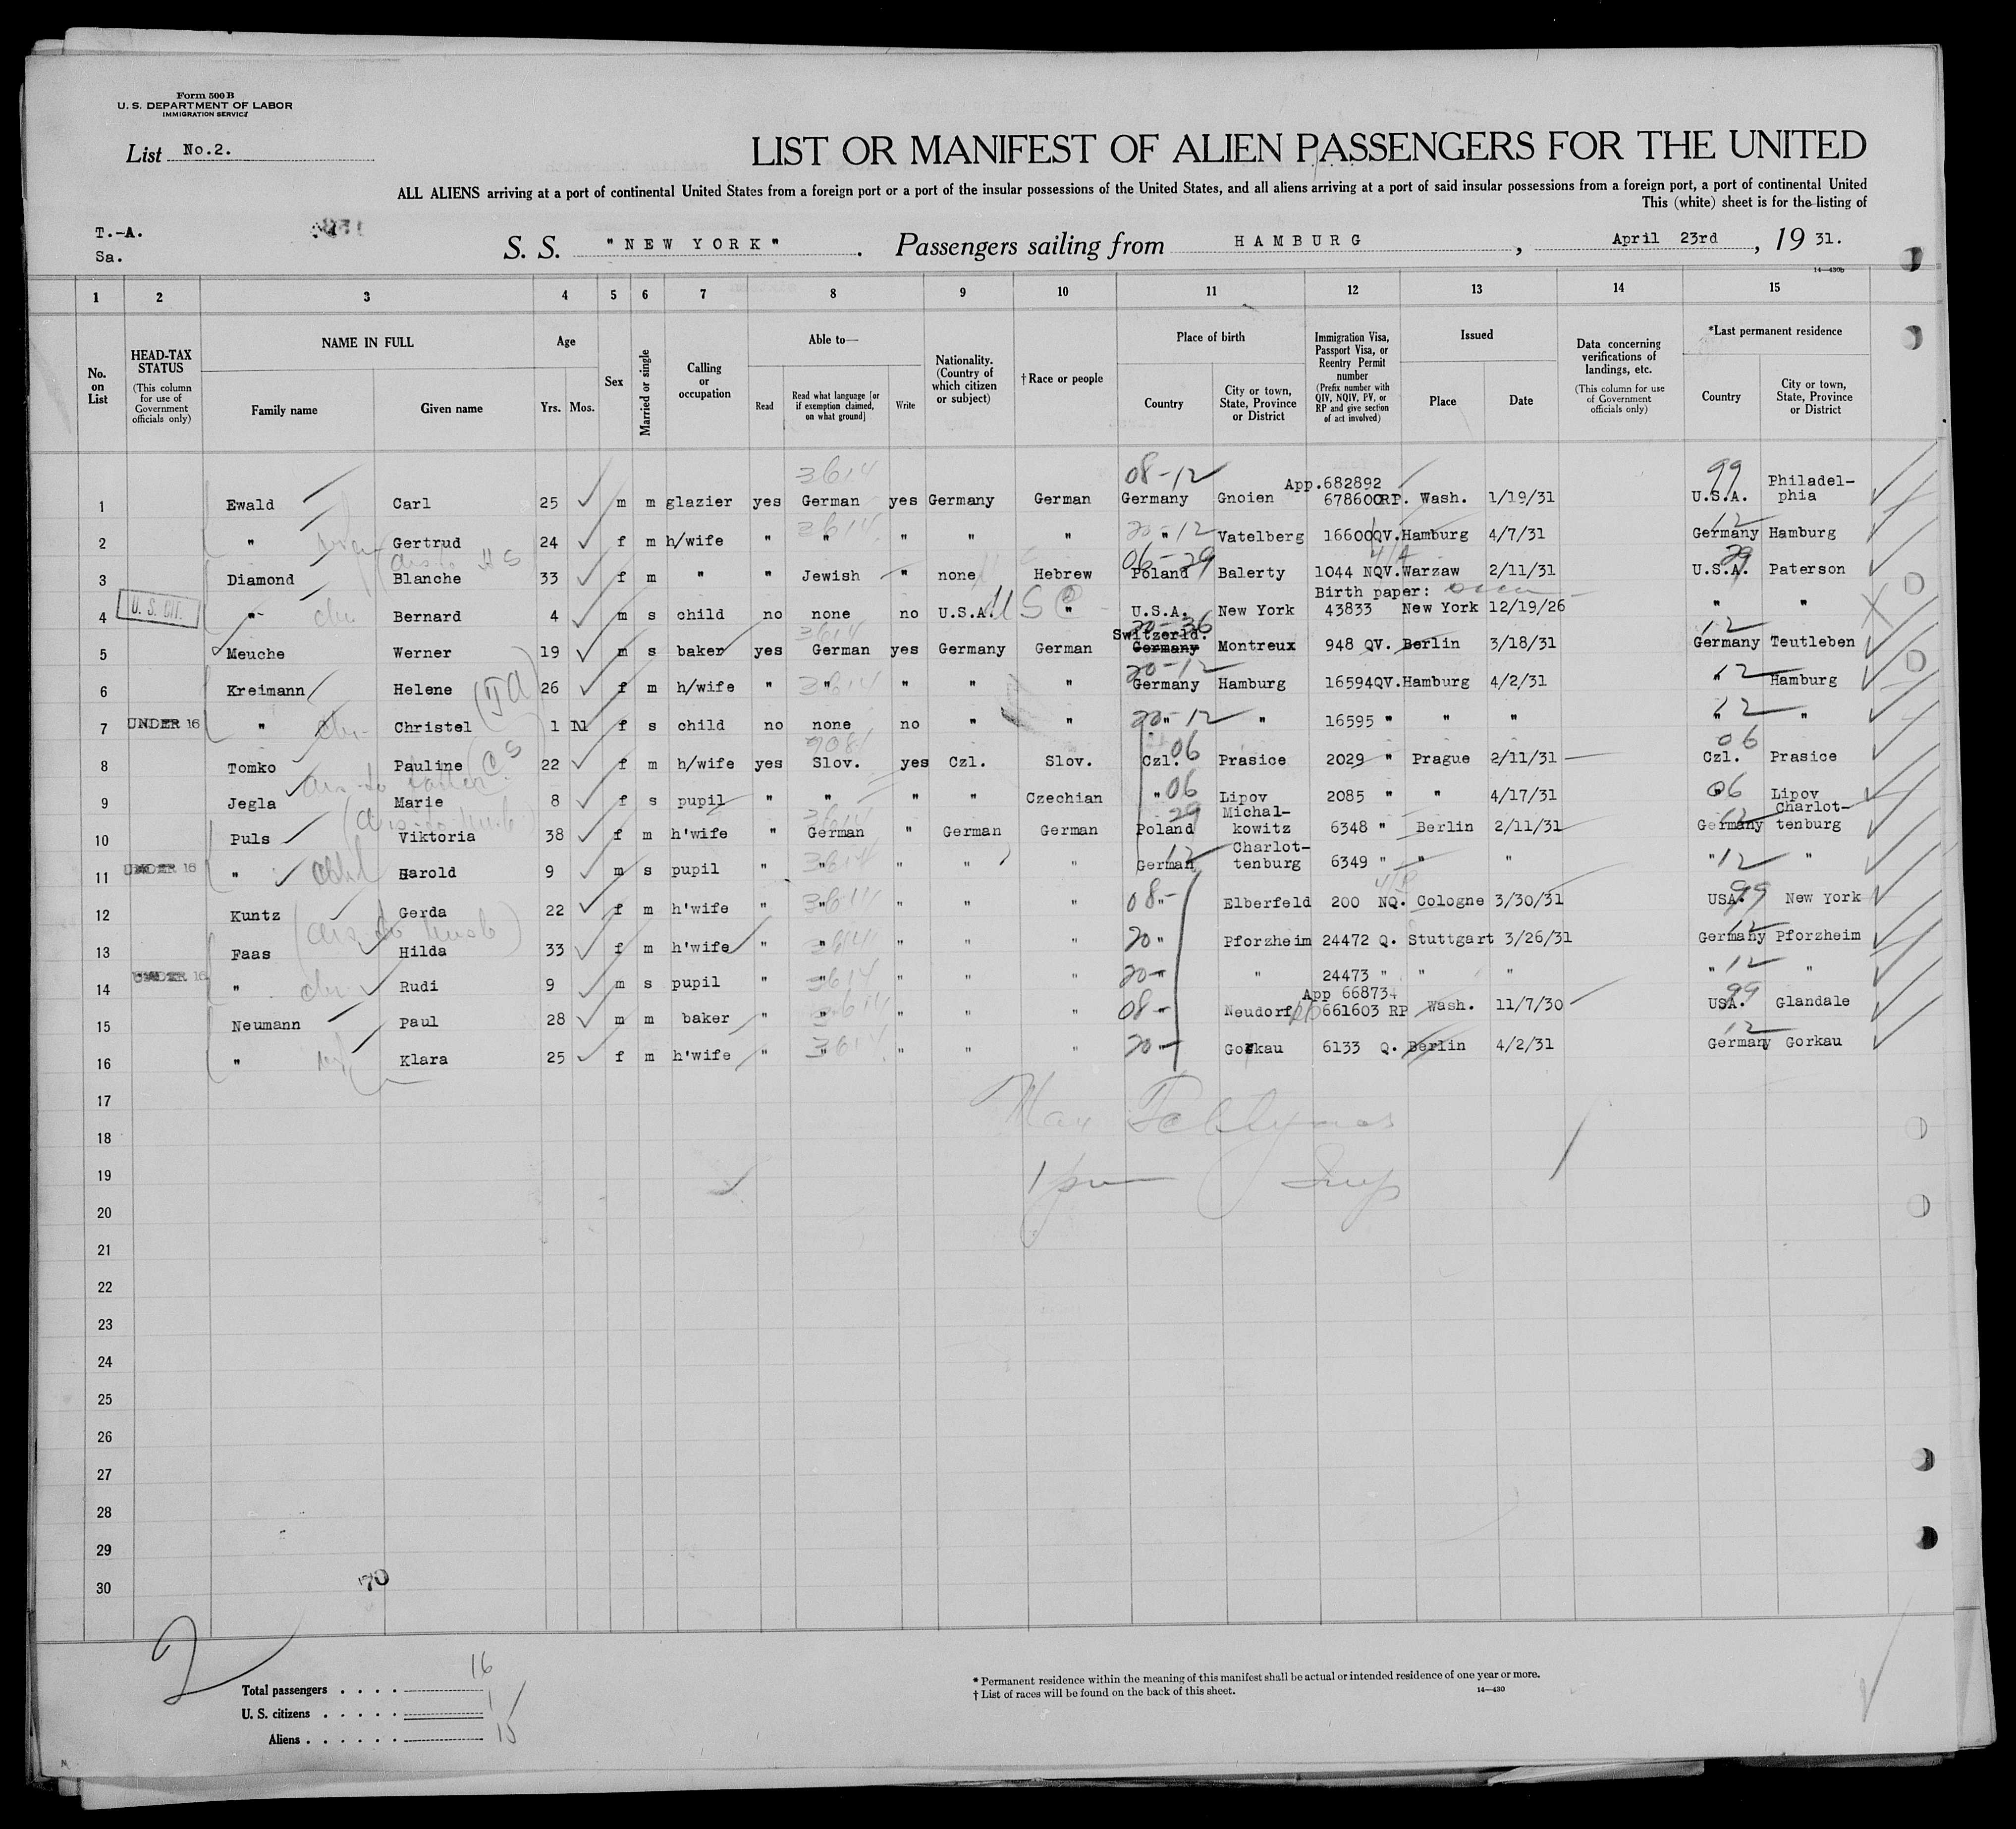 Form 500 B
U. S. DEPARTMENT OF LABOR
IMMIGRATION SERVICE
List No.2.
LIST OR MANIFEST OF ALIEN PASSENGERS FOR THE UNITED
ALL ALIENS arriving at a port of continental United States from a foreign port or a port of the insular possessions of the United States, and all aliens arriving at a port of said insular possessions from a foreign port, a port of continental United
This (white) sheet is for the listing of
T.-A.
Sa.
S. S. "NEW YORK". Passengers sailing from HAMBURG, April 23rd, 19 31.
14—430b
1 2 3 4 5 6 7 8 9 10 11 12 13 14 15
No. on List
HEAD-TAX STATUS
(This column for use of Government officials only)
NAME IN FULL
Family name Given name
Age
Yrs. Mos.
Sex
Married or single
Calling or occupation
Able to—
Read Read what language [or if exemption claimed, on what ground] Write
Nationality. (Country of which citizen or subject)
†Race or people
Place of birth
Country City or town, State, Province or District
Immigration Visa, Passport Visa, or Reentry Permit number
(Prefix number with QIV, NQIV, PV, or RP and give section of act involved)
Issued
Place Date
Data concerning verifications of landings, etc.
(This column for use of Government officials only)
*Last permanent residence
Country City or town, State, Province or District
3614 08-12 App.682892 99 Philadel-
1 Ewald Carl 25 m m glazier yes German yes Germany German Germany Gnoien 678600RP. Wash. 1/19/31 U.S.A. phia
3614 20-12 12
2 " Gertrud 24 f m h/wife " " " " " " Vatelberg 16600QV. Hamburg 4/7/31 Germany Hamburg
06-29 29
3 Diamond Blanche 33 f m " " Jewish " none Hebrew Poland Balerty 1044 NQV. Warzaw 2/11/31 U.S.A. Paterson
Birth paper:
U. S. CIT.
4 " Bernard 4 m s child no none no U.S.A. USC " U.S.A. New York 43833 New York 12/19/26 " "
3614 20-36 Switzerld. 12
5 Meuche Werner 19 m s baker yes German yes Germany German Germany Montreux 948 QV. Berlin 3/18/31 Germany Teutleben
20-12
6 Kreimann Helene 26 f m h/wife " " 3614 " " " Germany Hamburg 16594QV. Hamburg 4/2/31 " 12 Hamburg
UNDER 16
7 " Christel 1 11 f s child no none no " " 20-12 " " 16595 " " " " 12 "
06 06
8 Tomko Pauline 22 f m h/wife yes Slov. yes Czl. Slov. Czl. Prasice 2029 " Prague 2/11/31 Czl. Prasice
9 Jegla Marie 8 f s pupil " " " " Czechian " 06 Lipov 2085 " " 4/17/31 06 Lipov
3614 29 Michal- 12 Charlot-
10 Puls Viktoria 38 f m h'wife " German " German German Poland kowitz 6348 " Berlin 2/11/31 Germany tenburg
UNDER 16
3614 12 Charlot-
11 " Harold 9 m s pupil " " " " " German tenburg 6349 " " " " 12 "
12 Kuntz Gerda 22 f m h'wife " " 3614 " " " 08-" Elberfeld 200 NQ. Cologne 3/30/31 USA. 99 New York
13 Faas Hilda 33 f m h'wife " " 3614 " " " 20 " Pforzheim 24472 Q. Stuttgart 3/26/31 Germany 12 Pforzheim
UNDER 16
14 " Rudi 9 m s pupil " " 3614 " " " 20-" " 24473 " " " " 12 "
App 668734
15 Neumann Paul 28 m m baker " " 3614 " " " 08-" Neudorf 661603 RP Wash. 11/7/30 USA. 99 Glandale
16 " Klara 25 f m h'wife " " 3614 " " " 20-" Gorkau 6133 Q. Berlin 4/2/31 Germany 12 Gorkau
17
18
19
20
21
22
23
24
25
26
27
28
29
30
70
2
Total passengers . . . . 16
U. S. citizens . . . . . 1
Aliens . . . . . . 15
* Permanent residence within the meaning of this manifest shall be actual or intended residence of one year or more.
† List of races will be found on the back of this sheet. 14—430